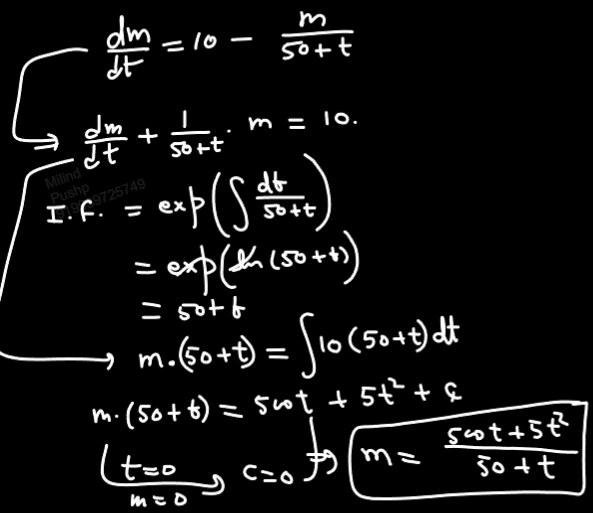 dm/dt = 10 - m/(50+t)
⇒ dm/dt + 1/(50+t) · m = 10.
Milind
Pushp
I.F. = exp(∫ dt/(50+t))
= exp(ln(50+t))
= 50+t
m.(50+t) = ∫10(50+t)dt
m.(50+t) = 500t + 5t² + c
t=0
m=0
c=0
⇒ m = (500t+5t²)/(50+t)